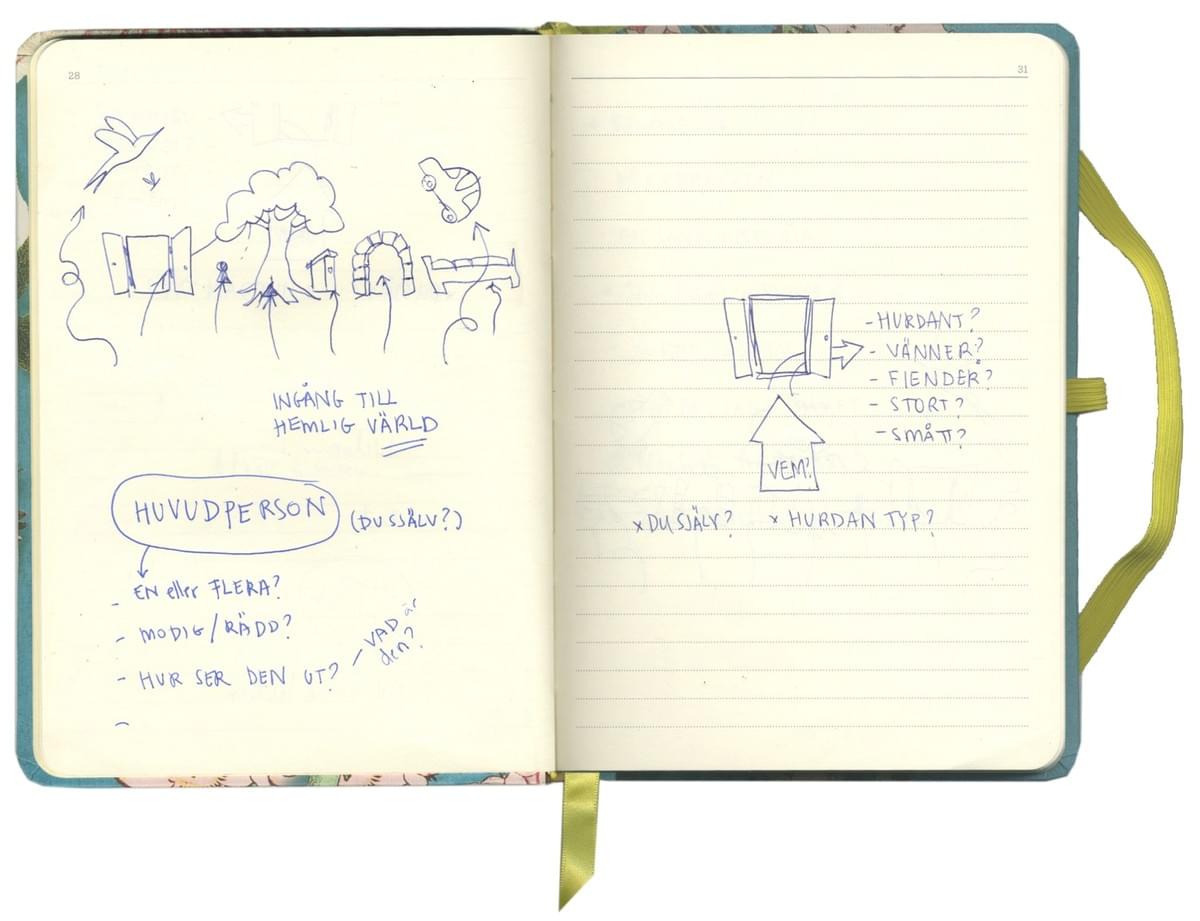 28
INGÅNG TILL
HEMLIG VÄRLD
HUVUDPERSON (DU SJÄLV?)
- EN eller FLERA?
- MODIG/RÄDD?
- HUR SER DEN UT? - VAD är
den?
-
31
- HURDANT?
- VÄNNER?
- FIENDER?
- STORT?
- SMÅTT?
VEM?
x DU SJÄLV? x HURDAN TYP?